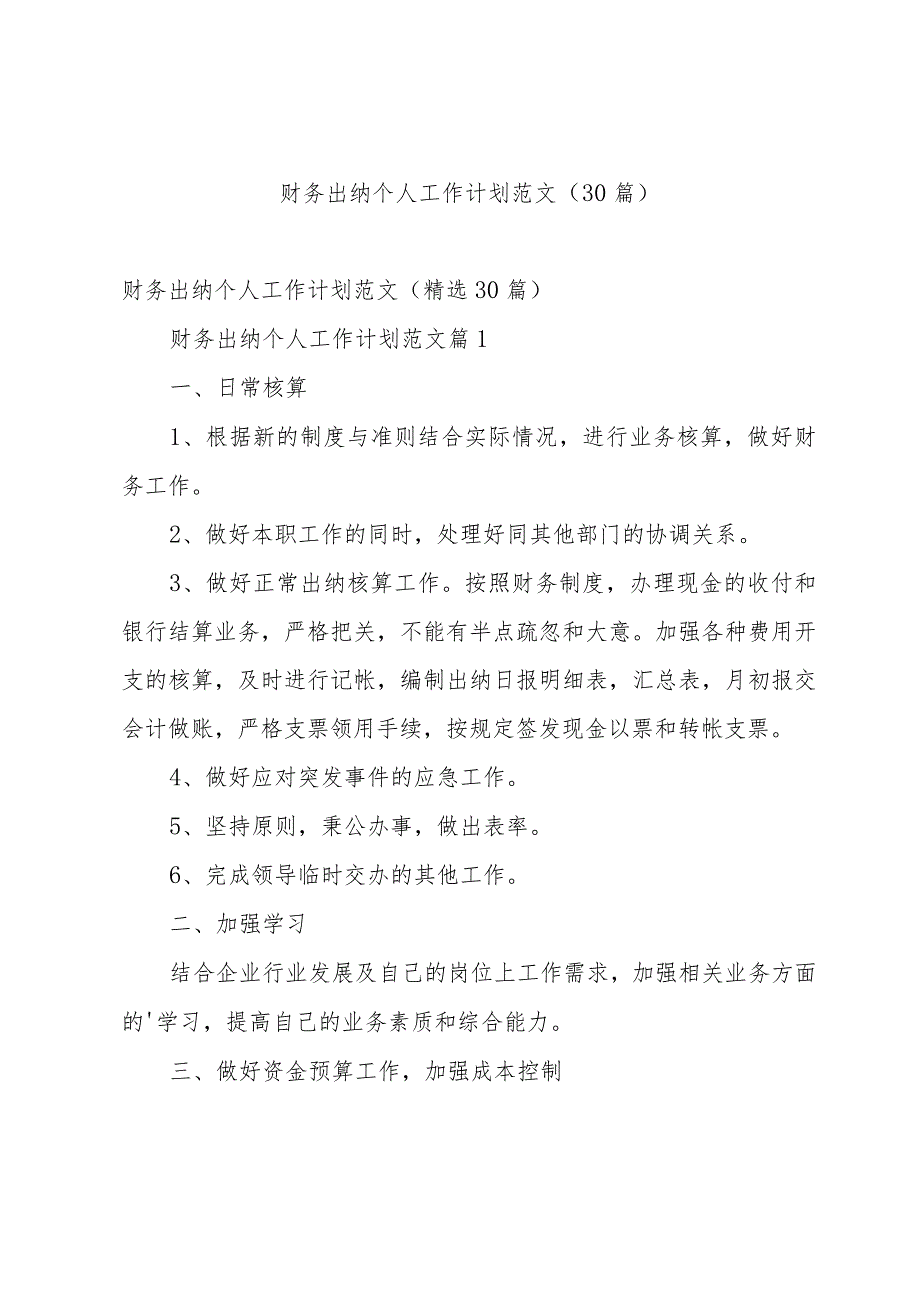 财务出纳个人工作计划范文（30 篇）
财务出纳个人工作计划范文（精选 30 篇）
财务出纳个人工作计划范文篇 1
一、日常核算
1、根据新的制度与准则结合实际情况，进行业务核算，做好财
务工作。
2、做好本职工作的同时，处理好同其他部门的协调关系。
3、做好正常出纳核算工作。按照财务制度，办理现金的收付和
银行结算业务，严格把关，不能有半点疏忽和大意。加强各种费用开
支的核算，及时进行记帐，编制出纳日报明细表，汇总表，月初报交
会计做账，严格支票领用手续，按规定签发现金以票和转帐支票。
4、做好应对突发事件的应急工作。
5、坚持原则，秉公办事，做出表率。
6、完成领导临时交办的其他工作。
二、加强学习
结合企业行业发展及自己的岗位上工作需求，加强相关业务方面
的'学习，提高自己的业务素质和综合能力。
三、做好资金预算工作，加强成本控制